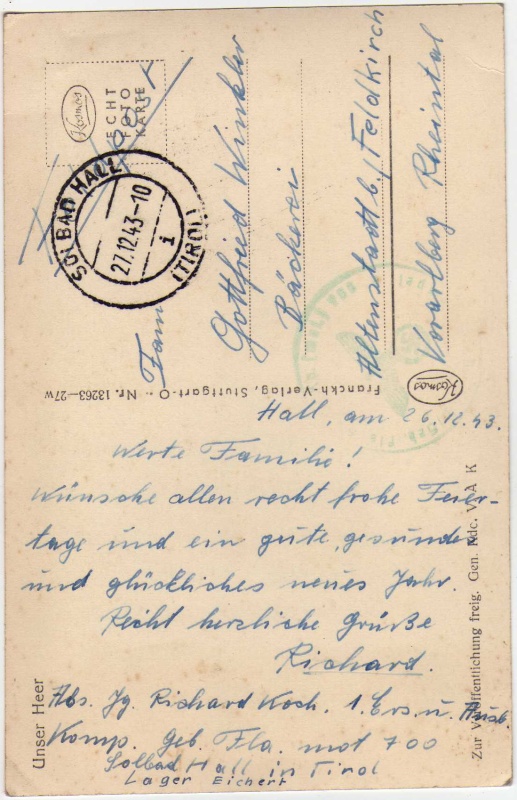 Kosmos
ECHT
FOTO
KARTE
SOLBAD HALL
27.12.43-10
i
(TIROL)
Fam
Gottfried Winkler
Bäckerei
Altenstadt b./Feldkirch
Vorarlberg Rheintal
Franckh-Verlag, Stuttgart-O · Nr. 13263—27w
Kosmos
Hall, am 26.12.43.
Werte Familie!
Wünsche allen recht frohe Feier-
tage und ein gute, gesundes
und glückliches neues Jahr.
Recht herzliche Grüße
Richard.
Abs. Jg. Richard Koch. 1. Ers. u. Ausb.
Komp. Geb. Fla. mot 700
Solbad Hall in Tirol
Lager Eichert
Unser Heer
Zur Veröffentlichung freig. Gen. Kdc. V. A K